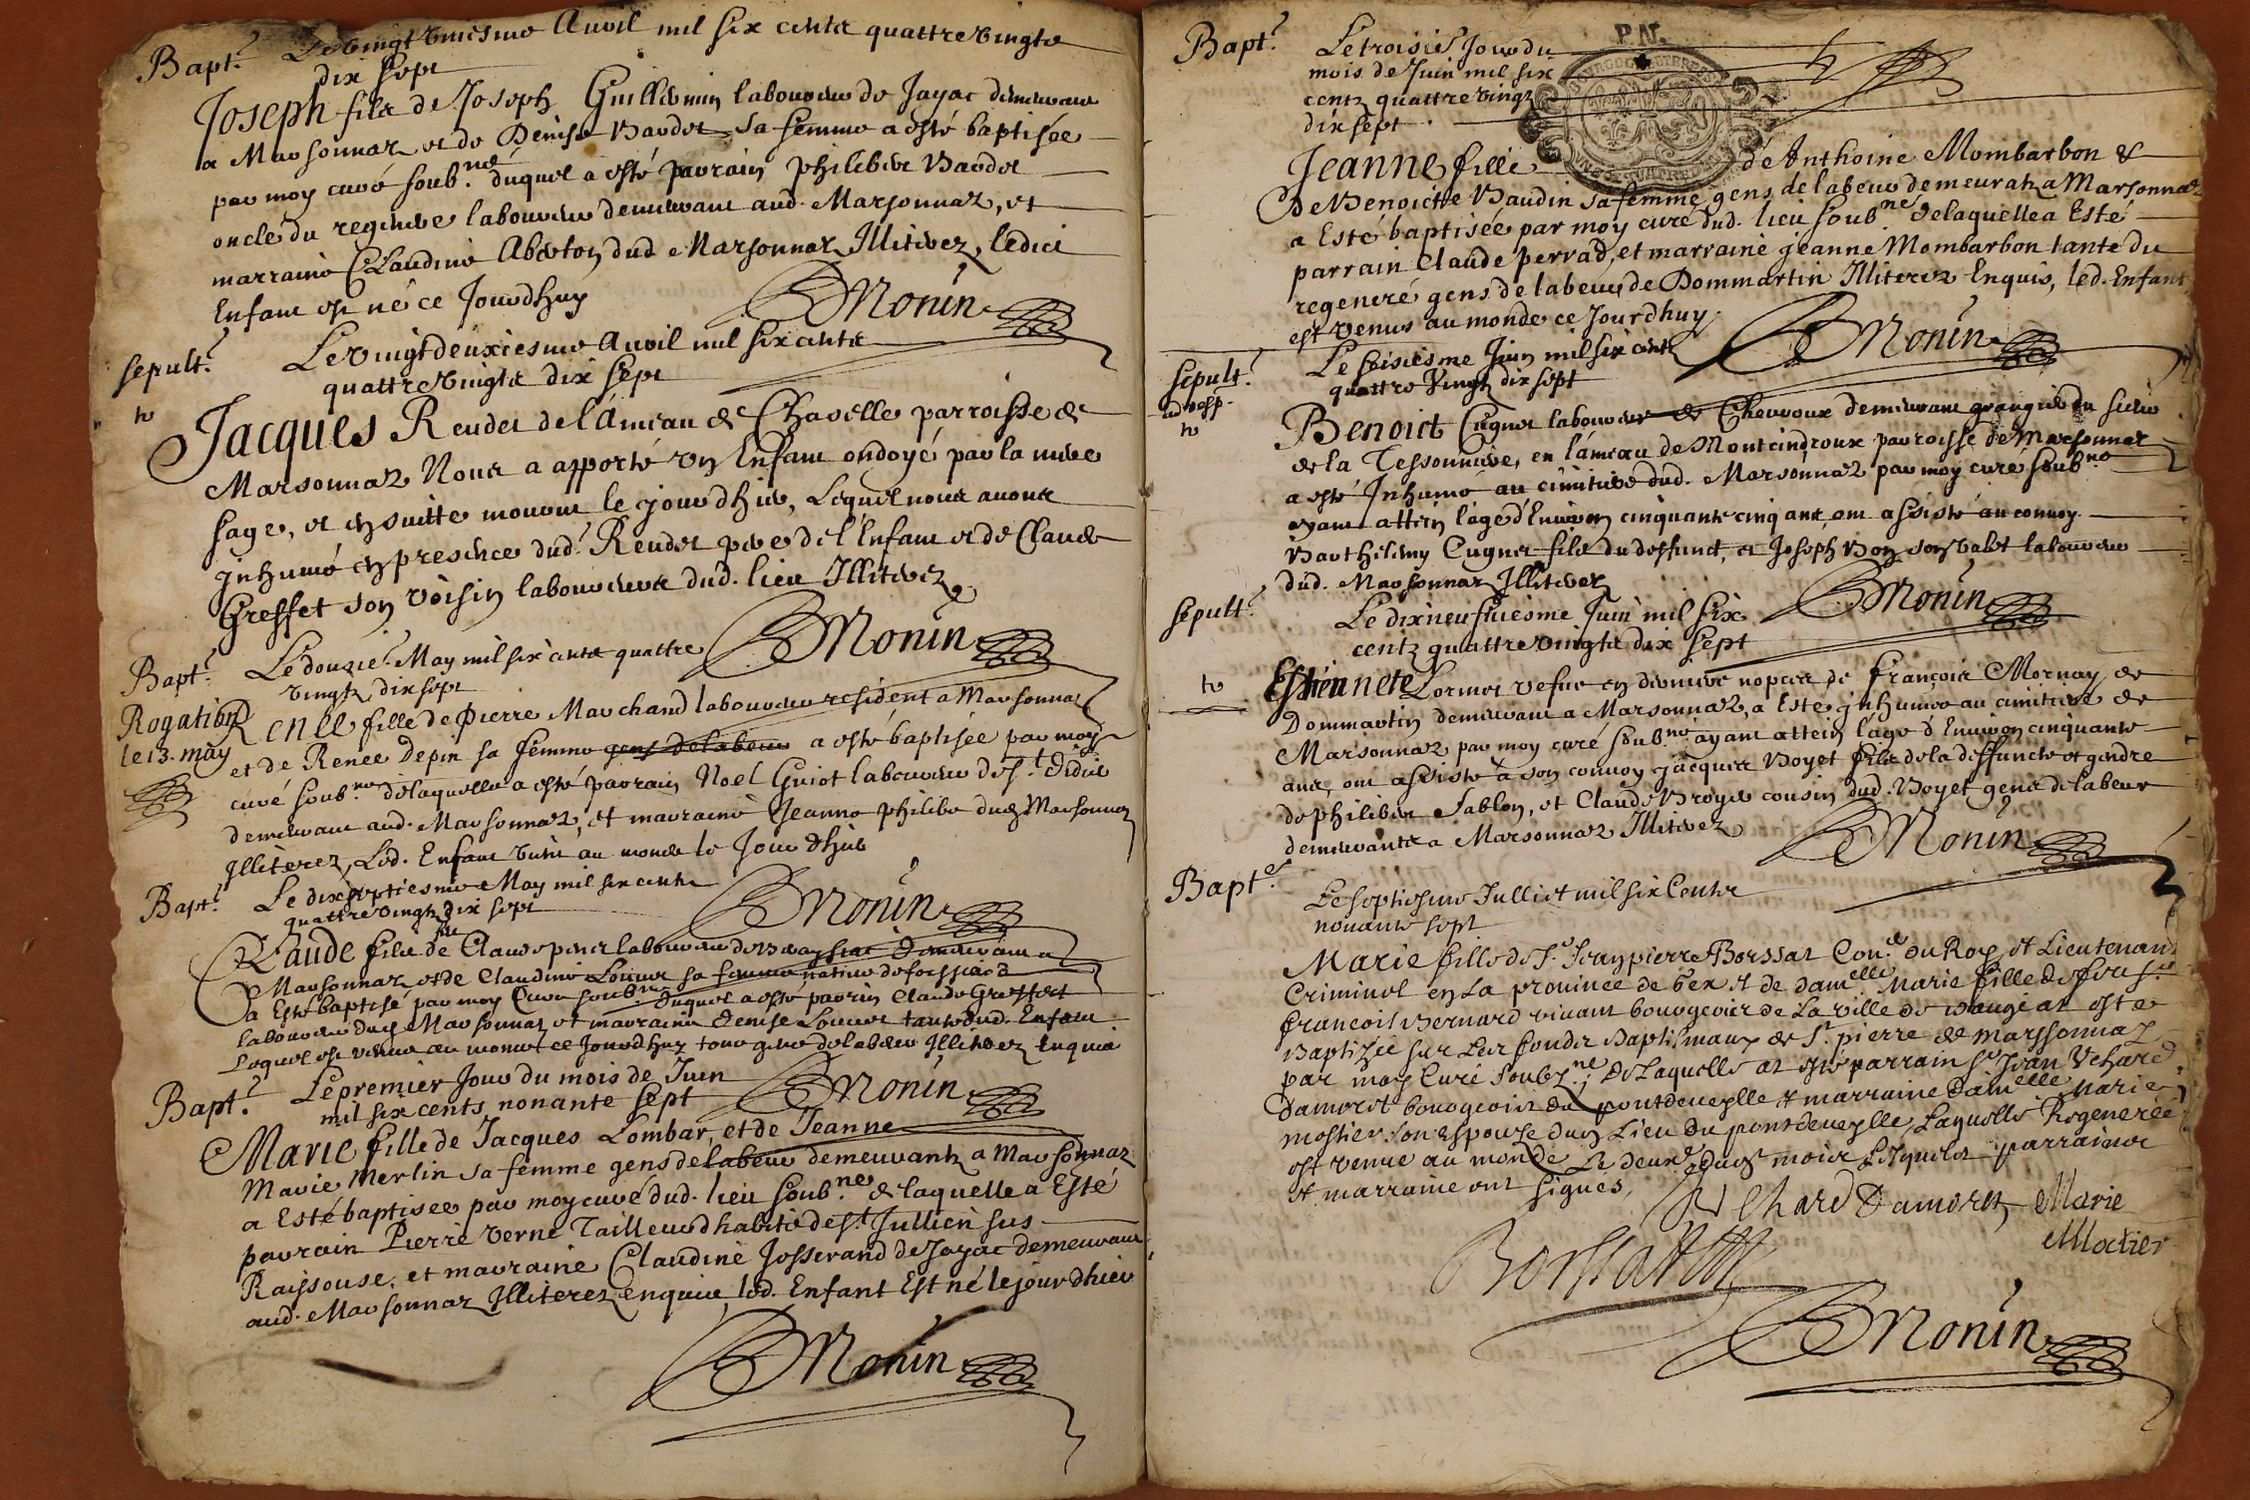 Bapt.e Le vingt uniesme Avril mil six cents quattre vingts
dix sept
Joseph fils de Joseph Guillemin laboureur de Jayac demeurant
a Marsonnaz et de Denise Baudet sa femme a esté baptisée
par moy curé soub.né duquel a esté parrain philibert Baudet
oncle du regeneré laboureur demeurant aud. Marsonnaz, et
marraine Claudine Aberton dud Marsonnaz Illiterez, ledict
Enfant est né ce Jourdhuy
BMonin
sepult.e Le vingt deuxiesme Avril mil six cents
quattre vingts dix sept
Jacques Reudet de l'ameau de Chavelle parroisse de
Marsonnaz Nous a apporté un Enfant ondoyé par la mere
sage, et ensuitte mourut le jour d'hier, Lequel nous avons
inhumé en presence dud. Reudet pere de l'Enfant et de Claude
Greffet son voisin laboureurs dud. lieu Illiterez
BMonin
Bapt.e Le douzie. May mil six cents quattre
vingts dix sept
Rogation
le 13. may
Renee fille de Pierre Marchand laboureur resident a Marsonnaz
et de Renee Depin sa femme gens de labeur a esté baptisée par moy
curé soub.né de laquelle a esté parrain Noel Guiot laboureur de s.t Didier
demeurant aud. Marsonnaz, et marraine Jeanne philibe dud Marsonnaz
Illiterez, Led. Enfant venu au monde le Jour d'hier
BMonin
Bapt.e Le dixseptiesme May mil six cents
quattre vingts dix sept
Claude fils de Claude laboureur demeurant a
Marsonnaz et de Claudine Louvet sa femme native de foissiard
a Esté baptisé par moy Curé soub.né duquel a esté parrin Claude Greffet
laboureur dud Marsonnaz et marraine Denise Louvet tante dud. Enfant
Lequel est venu au monde ce Jourdhuy tous gens de labeur Illiterez Enquis
BMonin
Bapt.e Le premier Jour du mois de Juin
mil six cents nonante sept
Marie fille de Jacques Lombar, et de Jeanne
Marie Merlin sa femme gens de labeur demeurantz a Marsonnaz
a Esté baptisée par moy curé dud. lieu soub.né de laquelle a Esté
parrain Pierre Verne Tailleur d'habits de s.t Jullien sus
Raissouse, et marraine Claudine Josserand de Jayac demeurant
aud. Marsonnaz Illiterez enquis led. Enfant Est né le jour d'hier
BMonin
P.N.
Bapt.e Le troisie. Jour du
mois de Juin mil six
centz quattre vingtz
dix sept
Jeanne fille de Anthoine Mombarbon &
De Benoicte Baudin sa femme gens de labeur demeurantz a Marsonnaz
a Esté baptisée par moy curé dud. lieu soub.né de laquelle a Esté
parrain Claude perrad, et marraine jeanne Mombarbon tante du
regeneré gens de labeur de Dommartin Illiterez Enquis, led. Enfant
est venus au monde ce Jourdhuy
BMonin
Sepult.e Le sisiesme Juin mil six centz
quattre vingtz dix sept
Benoict Cugnet laboureur de Chevroux demeurant grangier du sieur
de la Tessonniere, en l'ameau de Montcindroux parroisse de Marsonnaz
a esté Inhumé au cimitiere dud. Marsonnaz par moy curé soub.né
ayant attein l'age d'Environ cinquante cinq ans, ont assisté au convoy
Barthelemy Cugnet fils du deffunct, et Joseph Bon son valet laboureurs
dud. Marsonnaz Illiterez
BMonin
sepult.e Le dixneufviesme Juin mil six
centz quattre vingts dix sept
Estiennete Lormet vefve en derniere nopces de François Mornay de
Dommartin demeurant a Marsonnaz, a Esté inhumée au cimitiere de
Marsonnaz par moy curé soub.né ayant attein l'age d'Environ cinquante
ans, ont assisté à son convoy jacques Boyet fils de la deffuncte et gendre
de philibert Sablon, et Claude Broyer cousin dud. Boyet gens de labeur
demeurants a Marsonnaz Illiterez
BMonin
Bapt.e Le septiesme Julliet mil six Cents
nonante sept
Marie fille de S.r Jean pierre Borssat Con.er du Roy et Lieutenant
Criminel en La province de Gex et de dam.elle Marie fille de feu S.r
francois Bernard vivant bourgeois de La ville de Baugé at esté
Baptizée sur Les fonds Baptismaux de S.t pierre de Marssonnaz
par moy Curé soubz.né, De Laquelle at esté parrain S.r Jean Vehard
Damoret bourgeois du pontdeveylle et marraine Dam.elle Marie
mostier son Espouze dud Lieu du pontdeveylle, Laquelle Regenerée
est venue au monde Le deux.e dud mois Lesquels parrains
et marraine ont signés,
Vehard Damoret Marie
Moctier
Borssat
BMonin